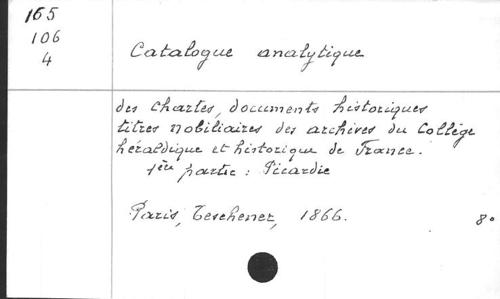 165
106
4
Catalogue analytique
des chartes, documents historiques
titres nobiliaires des archives du Collège
héraldique et historique de France.
1ère partie : Picardie
Paris, Teschener, 1866. 8°